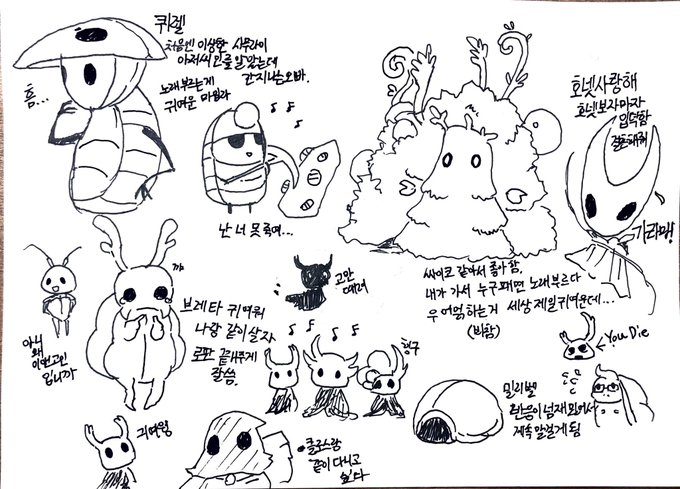 퀴렐
처음엔 이상한 사무라이
아저씨인줄 알았는데
간지나는오빠.
흠...
노래부르는게
귀여운 마일라
난 너 못죽여...
호넷사랑해
호넷보자마자
입덕함
결혼해줘
가라랏!
싸이코 같아서 좋아함.
내가 가서 누구 패면 노래부르다
우어멈하는거 세상 제일귀여운데...
(바람)
꺄
고만
때려
아니
왜
이쁜그림
입니까
브레타 귀여워
나랑 같이살자
로판 끝내주게
잘씀.
형구
You Die
밀리벨
반응이 넘재밌어서
계속 말걸게됨
귀여웡
클로스랑
같이 다니고
싶다